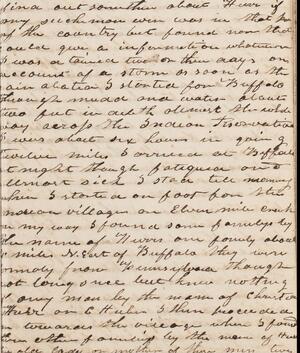 find out somthin about Huvr if
any such man ever was in that part
of the country but found non that
could give a information whatever
I was a tained two or three days on
account of a storm as soon as the
rain abated I started for Buffalo
through mudd and water about
two feet in depth almost the whole
way across the Indian reservation
I was about six hours in going
twelve miles I arived at Buffalo
at night though fatigued and
allmost sick I staid till morning
when I started on foot for the
Indian villages on Eleven mile creek
on my way I found some familys by
the name of Huvrs one family about
miles N. East of Buffalo they were
formely from Pennsylvania though
not long since but knew nothing
of any man by the name of
Huvr or I then proceeded
towards the village when I found
two other familys by the name of